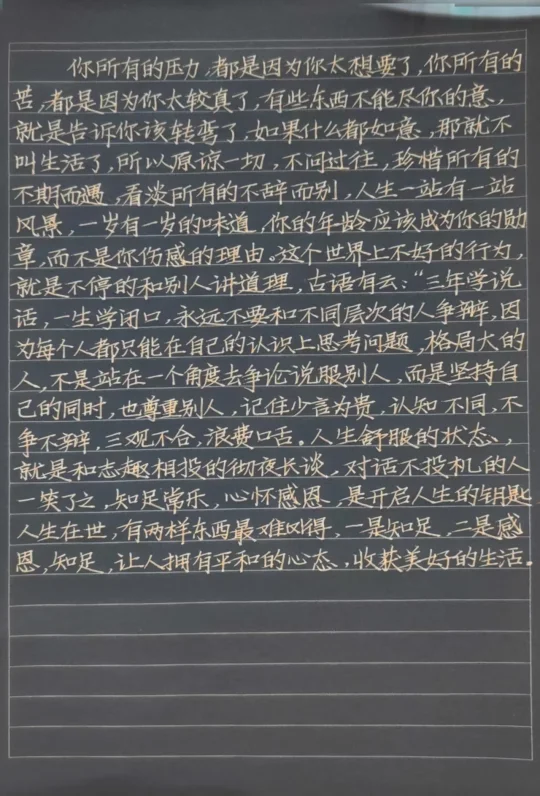 你所有的压力,都是因为你太想要了,你所有的
苦,都是因为你太较真了,有些东西不能尽你的意,
就是告诉你该转弯了,如果什么都如意,那就不
叫生活了,所以原谅一切,不问过往,珍惜所有的
不期而遇,看淡所有的不辞而别,人生一站有一站
风景,一岁有一岁的味道,你的年龄应该成为你的勋
章,而不是你伤感的理由。这个世界上不好的行为,
就是不停的和别人讲道理,古语有云:“三年学说
话,一生学闭口,永远不要和不同层次的人争辩,因
为每个人都只能在自己的认识上思考问题,格局大的
人,不是站在一个角度去争论说服别人,而是坚持自
己的同时,也尊重别人,记住少言为贵,认知不同,不
争不辩,三观不合,浪费口舌。人生舒服的状态,
就是和志趣相投的彻夜长谈,对话不投机的人
一笑了之,知足常乐,心怀感恩,是开启人生的钥匙
人生在世,有两样东西最难得,一是知足,二是感
恩,知足,让人拥有平和的心态,收获美好的生活。